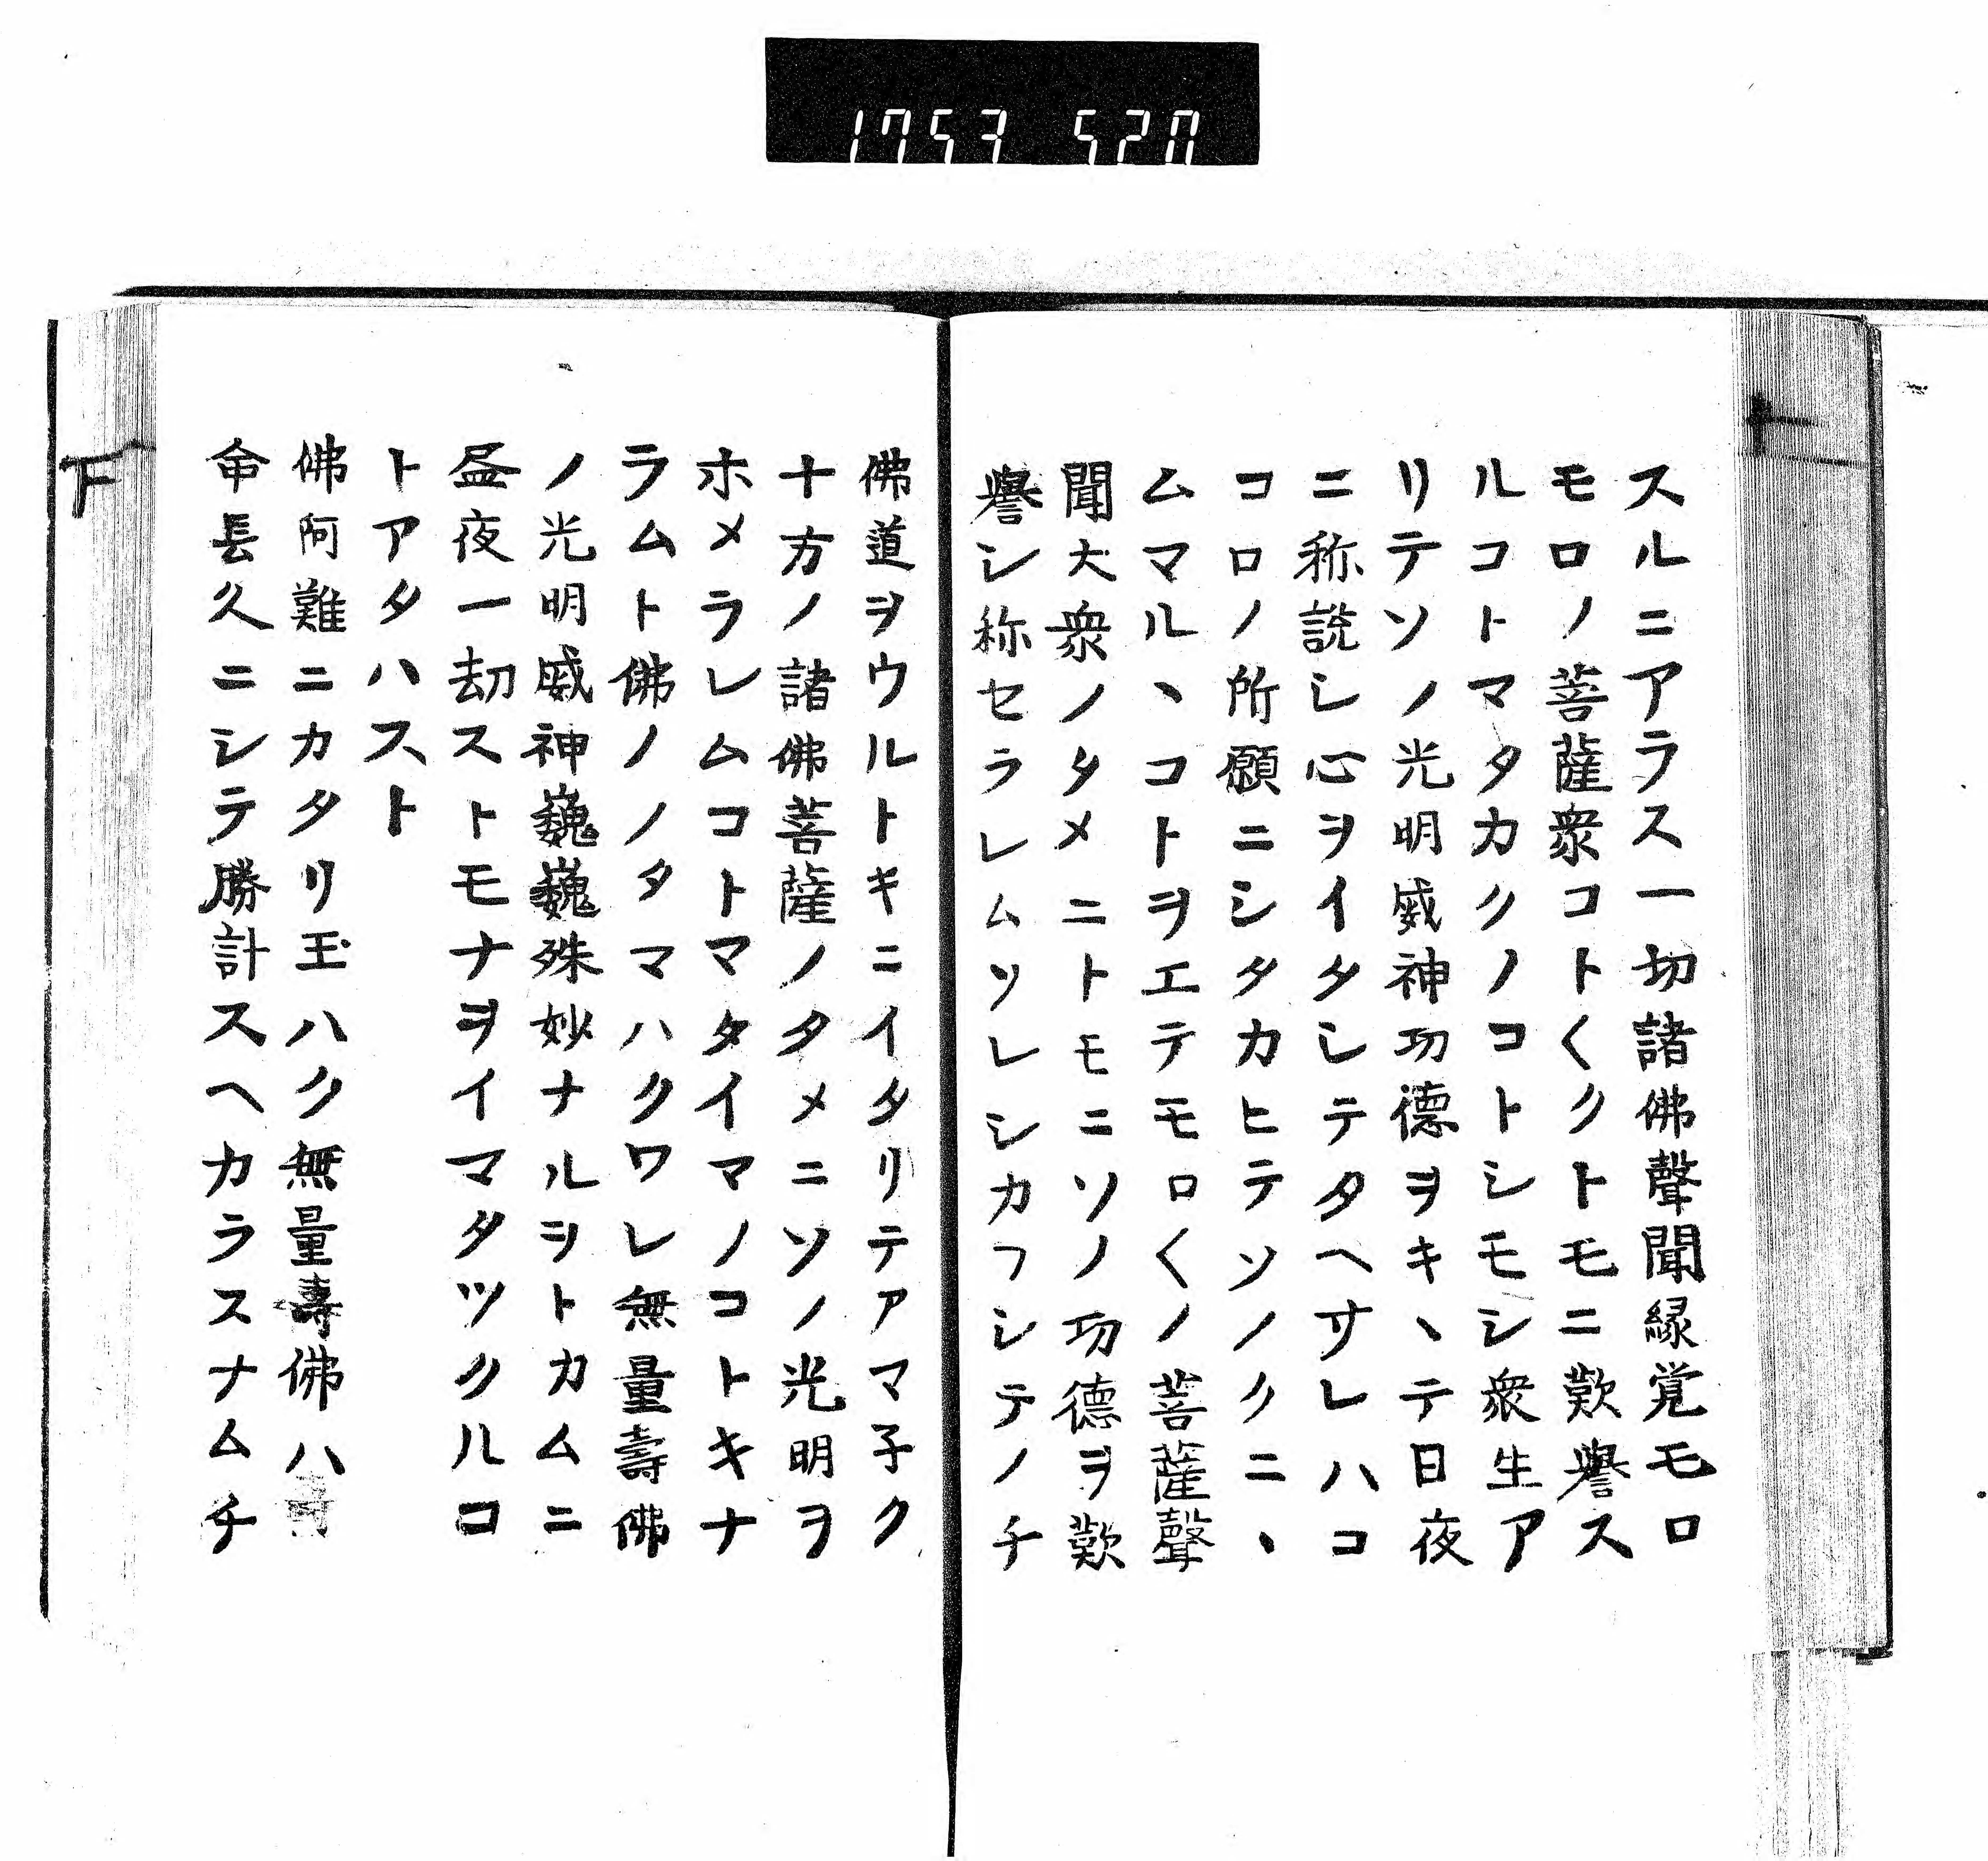 1753 520
スルニアラス一切諸佛聲聞縁覚モロ
モロノ菩薩衆コト〱クトモニ歎譽ス
ルコトマタカクノコトシモシ衆生ア
リテソノ光明威神功德ヲキヽテ日夜
ニ称説シ心ヲイタシテタヘサレハコ
コロノ所願ニシタカヒテソノクニヽ
ムマルヽコトヲエテモロ〱ノ菩薩聲
聞大衆ノタメニトモニソノ功德ヲ歎
譽シ称セラレムソレシカフシテノチ
佛道ヲウルトキニイタリテアマ子ク
十方ノ諸佛菩薩ノタメニソノ光明ヲ
ホメラレムコトマタイマノコトキナ
ラムト佛ノノタマハクワレ無量壽佛
ノ光明威神巍巍殊妙ナルヲトカムニ
昼夜一劫ストモナヲイマタツクルコ
トアタハスト
佛阿難ニカタリ玉ハク無量壽佛ハ壽
命長久ニシテ勝計スヘカラスナムチ
下